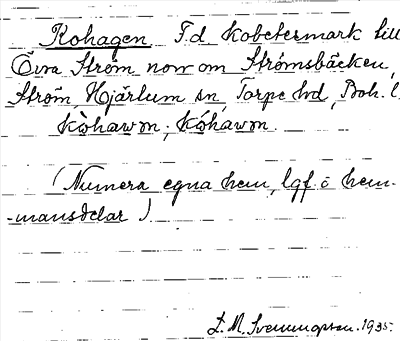 Kohagen F.d. kobetesmark till
Övra Ström norr om Strömsbäcken,
Ström, Hjärtum sn, Torpe hd, Boh. l.
(Numera egna hem, lgf. o hem-
-mansdelar)
1935.